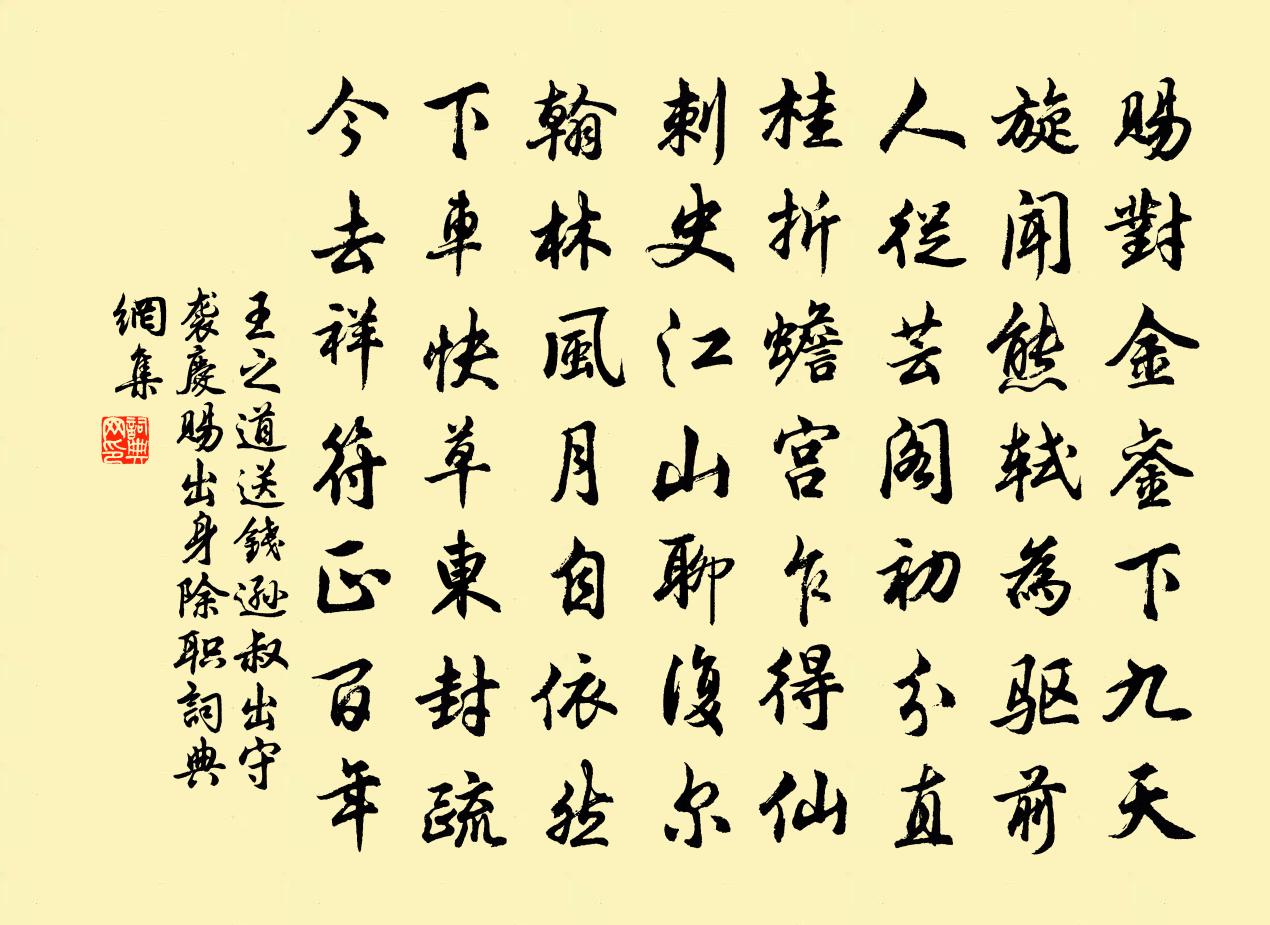 賜對金鑾下九天
旋聞熊軾為驱前
人從芸閣初分直
桂折蟾宫乍得仙
刺史江山聊復尔
翰林風月自依然
下車快草東封疏
今去祥符正百年
王之道送錢遜叔出守
袭慶賜出身除职詞典
網集
詞典网印